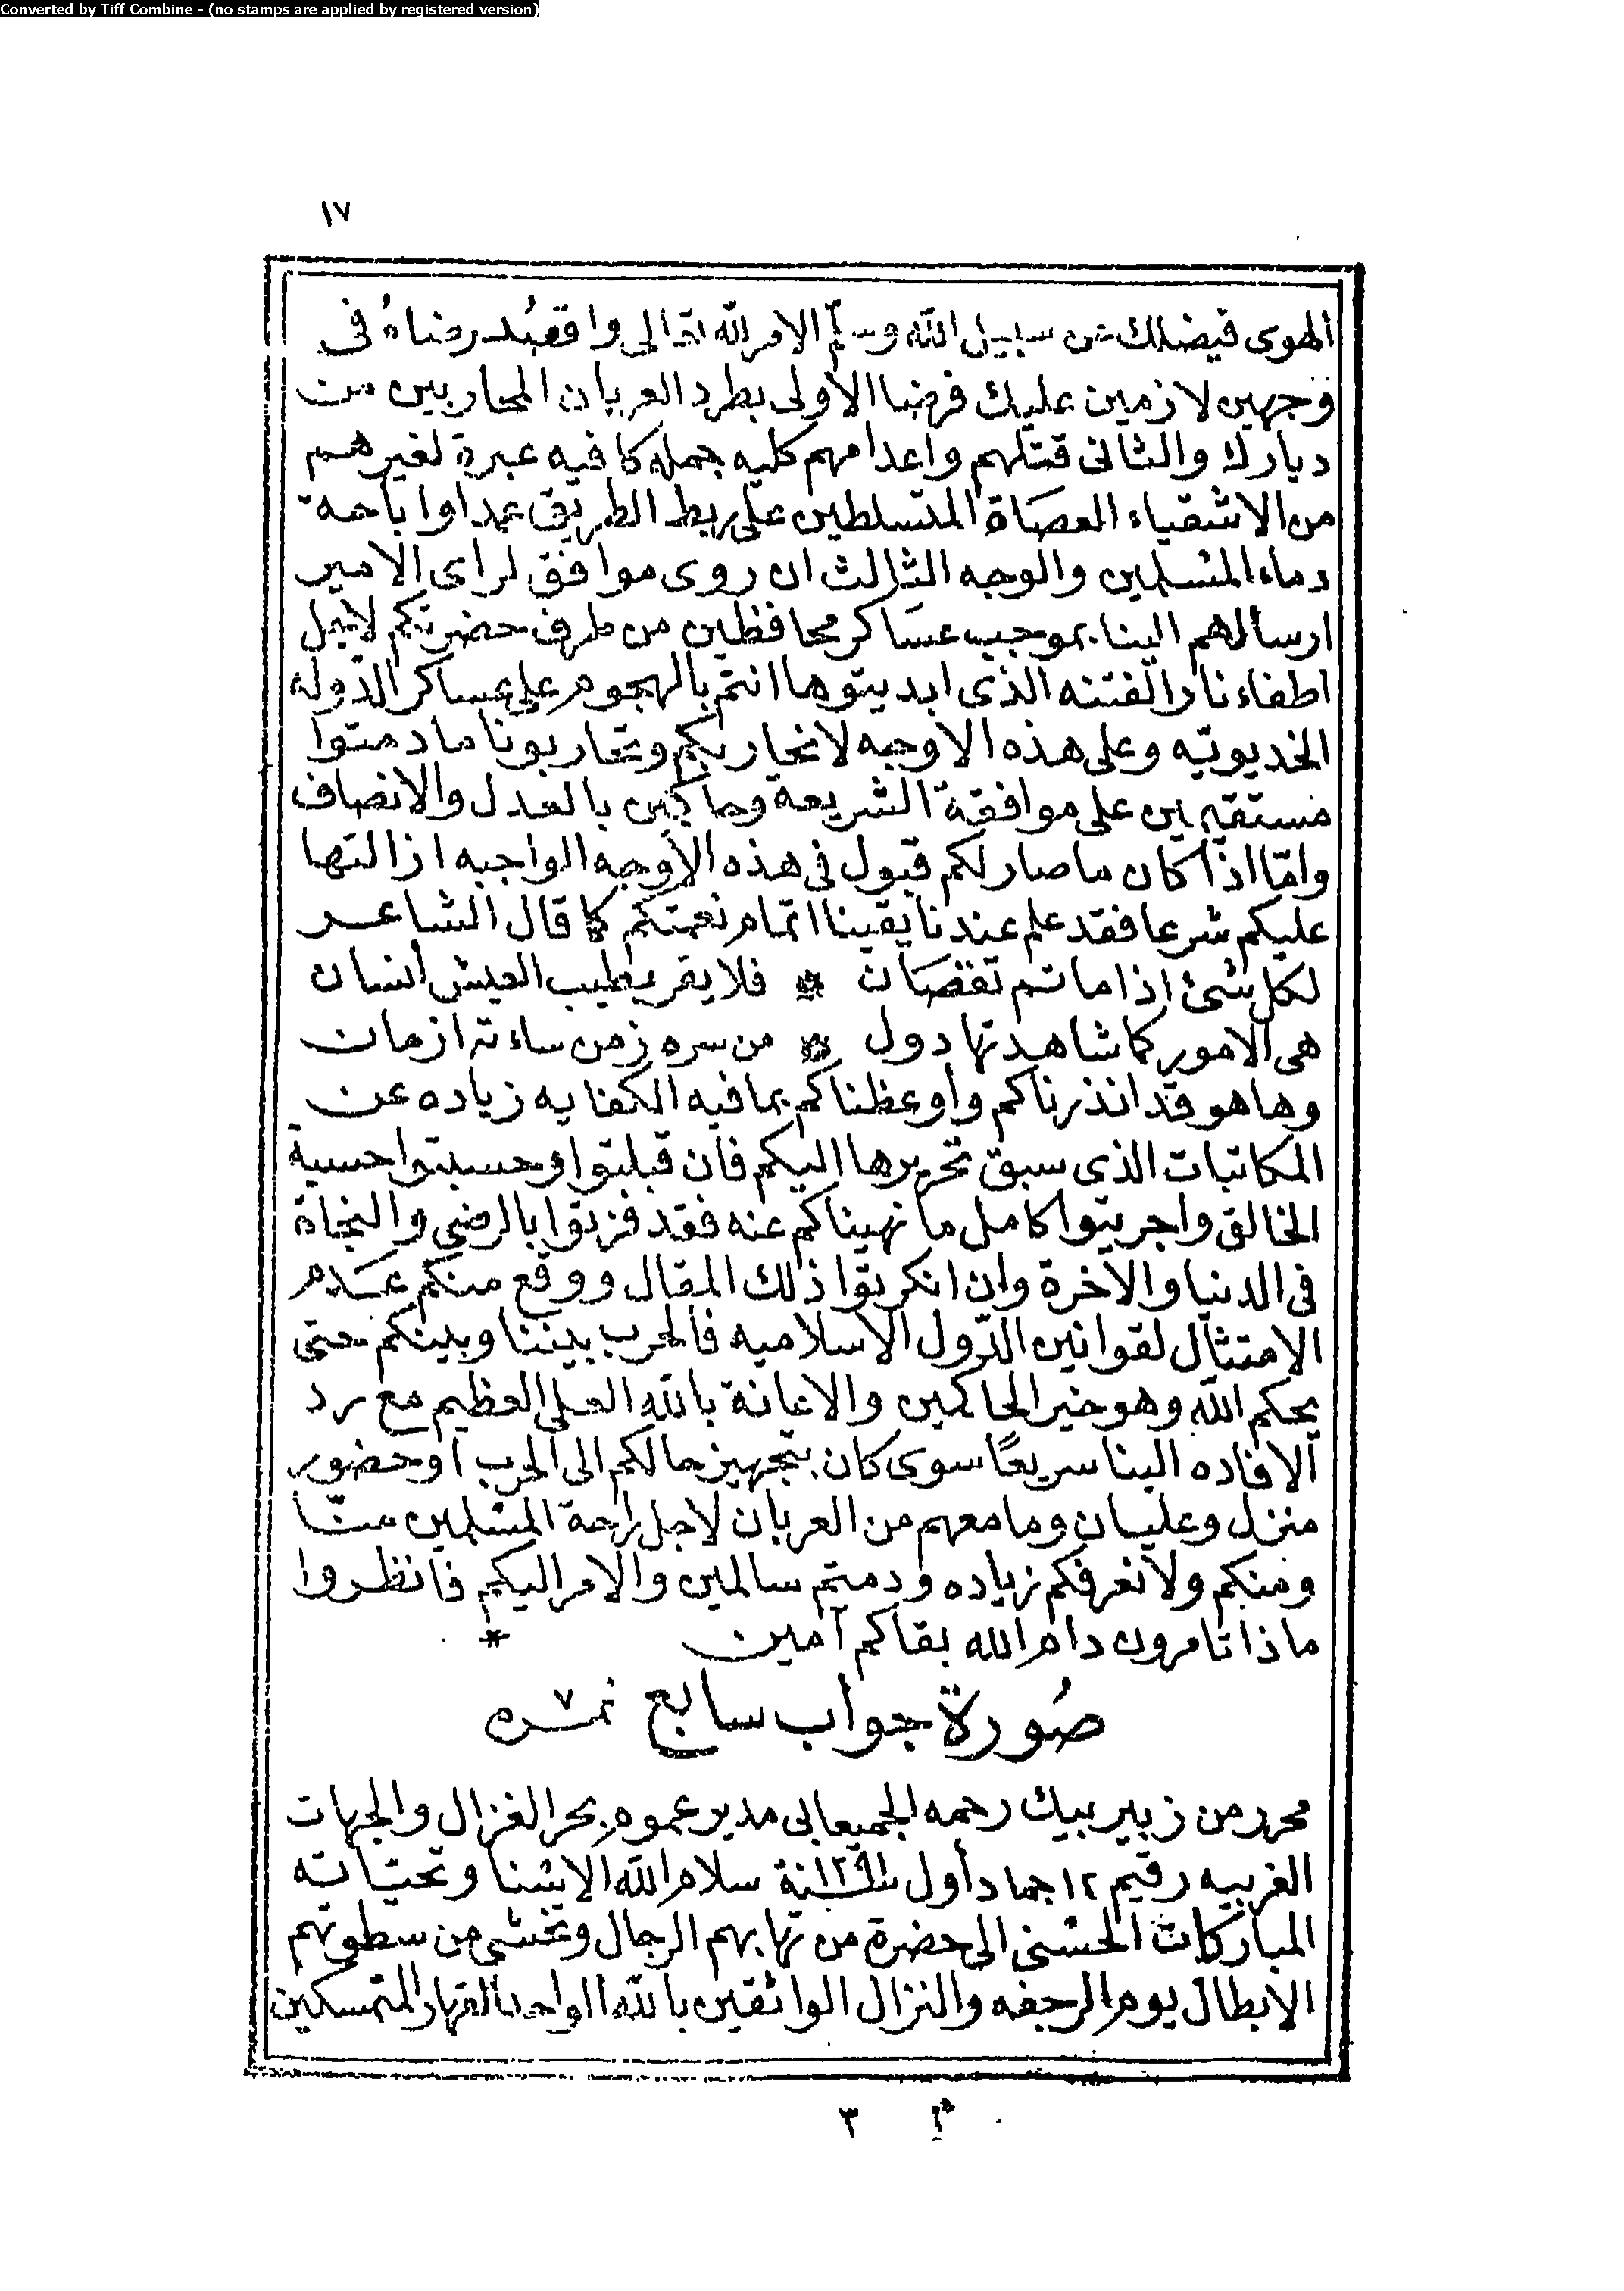 Converted by Tiff Combine - (no stamps are applied by registered version)
١٧
الهوى فيضلك عن سبيل الله وسلّم الامر لله تعالى واقصُد رضاهُ فى
وجهين لازمين عليك فرضا الاولى بطرد العربان المحاربين من
ديارك والثانى قتلهم واعدامهم كليه جمله كافيه عبرة لغيرهم
من الاشقياء العصاة المتسلطين على ربط الطريق عمدا واباحة
دماء المسلمين والوجه الثالث ان روى موافق لراى الامير
ارسالهم الينا بموجب عساكر محافظين من طرف حضرتكم لاجل
اطفاء نار الفتنه الذى ابديتوها انتم بالهجوم على عساكر الدوله
الخديويّه وعلى هذه الاوجه لا نحاربكم وتحاربونا ما دمتوا
مستقيمين على موافقة الشريعة وحاكمين بالعدل والانصاف
وامّا اذا كان ما صار لكم قبول فى هذه الاوجه الواجبه ازالتها
عليكم شرعا فقد علم عندنا يقينا اتمام نعمتكم كما قال الشاعر
لكل شئ اذا ما تم نقصان * فلا يغر بطيب العيش انسان
هى الامور كما شاهدتها دول * من سره زمن ساءته ازمان
وها هو قد انذرناكم وأوعظناكم بما فيه الكفايه زياده عن
المكاتبات الذى سبق تحريرها اليكم فان قبلتوا وحسبتوا حسبة
الخالق واجريتوا كامل ما نهيناكم عنه فقد فزتوا بالرضى والنجاة
فى الدنيا والاخرة وان انكرتوا ذلك المقال ووقع منكم عدم
الامتثال لقوانين الدّول الاسلاميه فالحرب بيننا وبينكم حتى
يحكم الله وهو خير الحاكمين والاعانة بالله العلى العظيم مع رد
الافاده الينا سريعًا سوى كان بتجهيز حالكم الى الحرب او حضور
منزل وعليان وما معهم من العربان لاجل راحة المسلمين منّا
ومنكم ولا نعرفكم زياده ودمتم سالمين والامر اليكم فانظروا
ماذا تامرون دام الله بقاكم آمين *
صُورة جواب سابع نمره ٧
محرر من زبير بيك رحمه الجميعابى مدير عموم بحر الغزال والجهات
الغربيه رقيم ١٢ جماد أول سنة ١٢٩١ سلام الله الاسنا وتحيّاته
المباركات الحسنى الى حضرة من تهابهم الرجال وتخشى من سطوتهم
الابطال يوم الرجفه والنزال الواثقين بالله الواحد القهار المتمسكين
٣